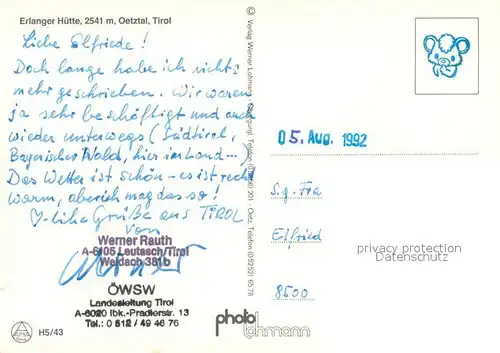 Erlanger Hütte, 2541 m, Oetztal, Tirol
Liebe Elfriede!
Doch lange habe ich nichts
mehr geschrieben. Wir waren
ja sehr beschäftigt und auch
wieder unterwegs (Südtirol,
Bayerischer Wald, hier im Land...)
Das Wetter ist schön – es ist recht
warm, aber ich mag das so!
Grüße aus TIROL
von
Werner Rauth
A-6105 Leutasch/Tirol
Weidach 381b
Werner
ÖWSW
Landesleitung Tirol
A-6020 Ibk.-Pradlerstr. 13
Tel.: 0 512 / 49 46 76
H5/43
© Verlag Werner Lohmann
Telefon
201 - Oetz, Telefon (05252) 6578
photo
lohmann
05. Aug. 1992
S.g. Fra
Elfried
8500
privacy protection
Datenschutz